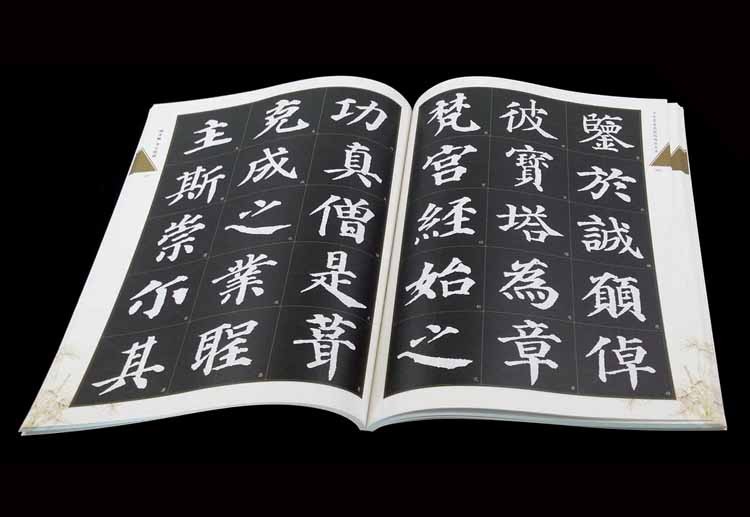 鑒於誠願倬
彼寶塔為章
梵宮經始之
功真僧是葺
克成之業聖
主斯崇尒其